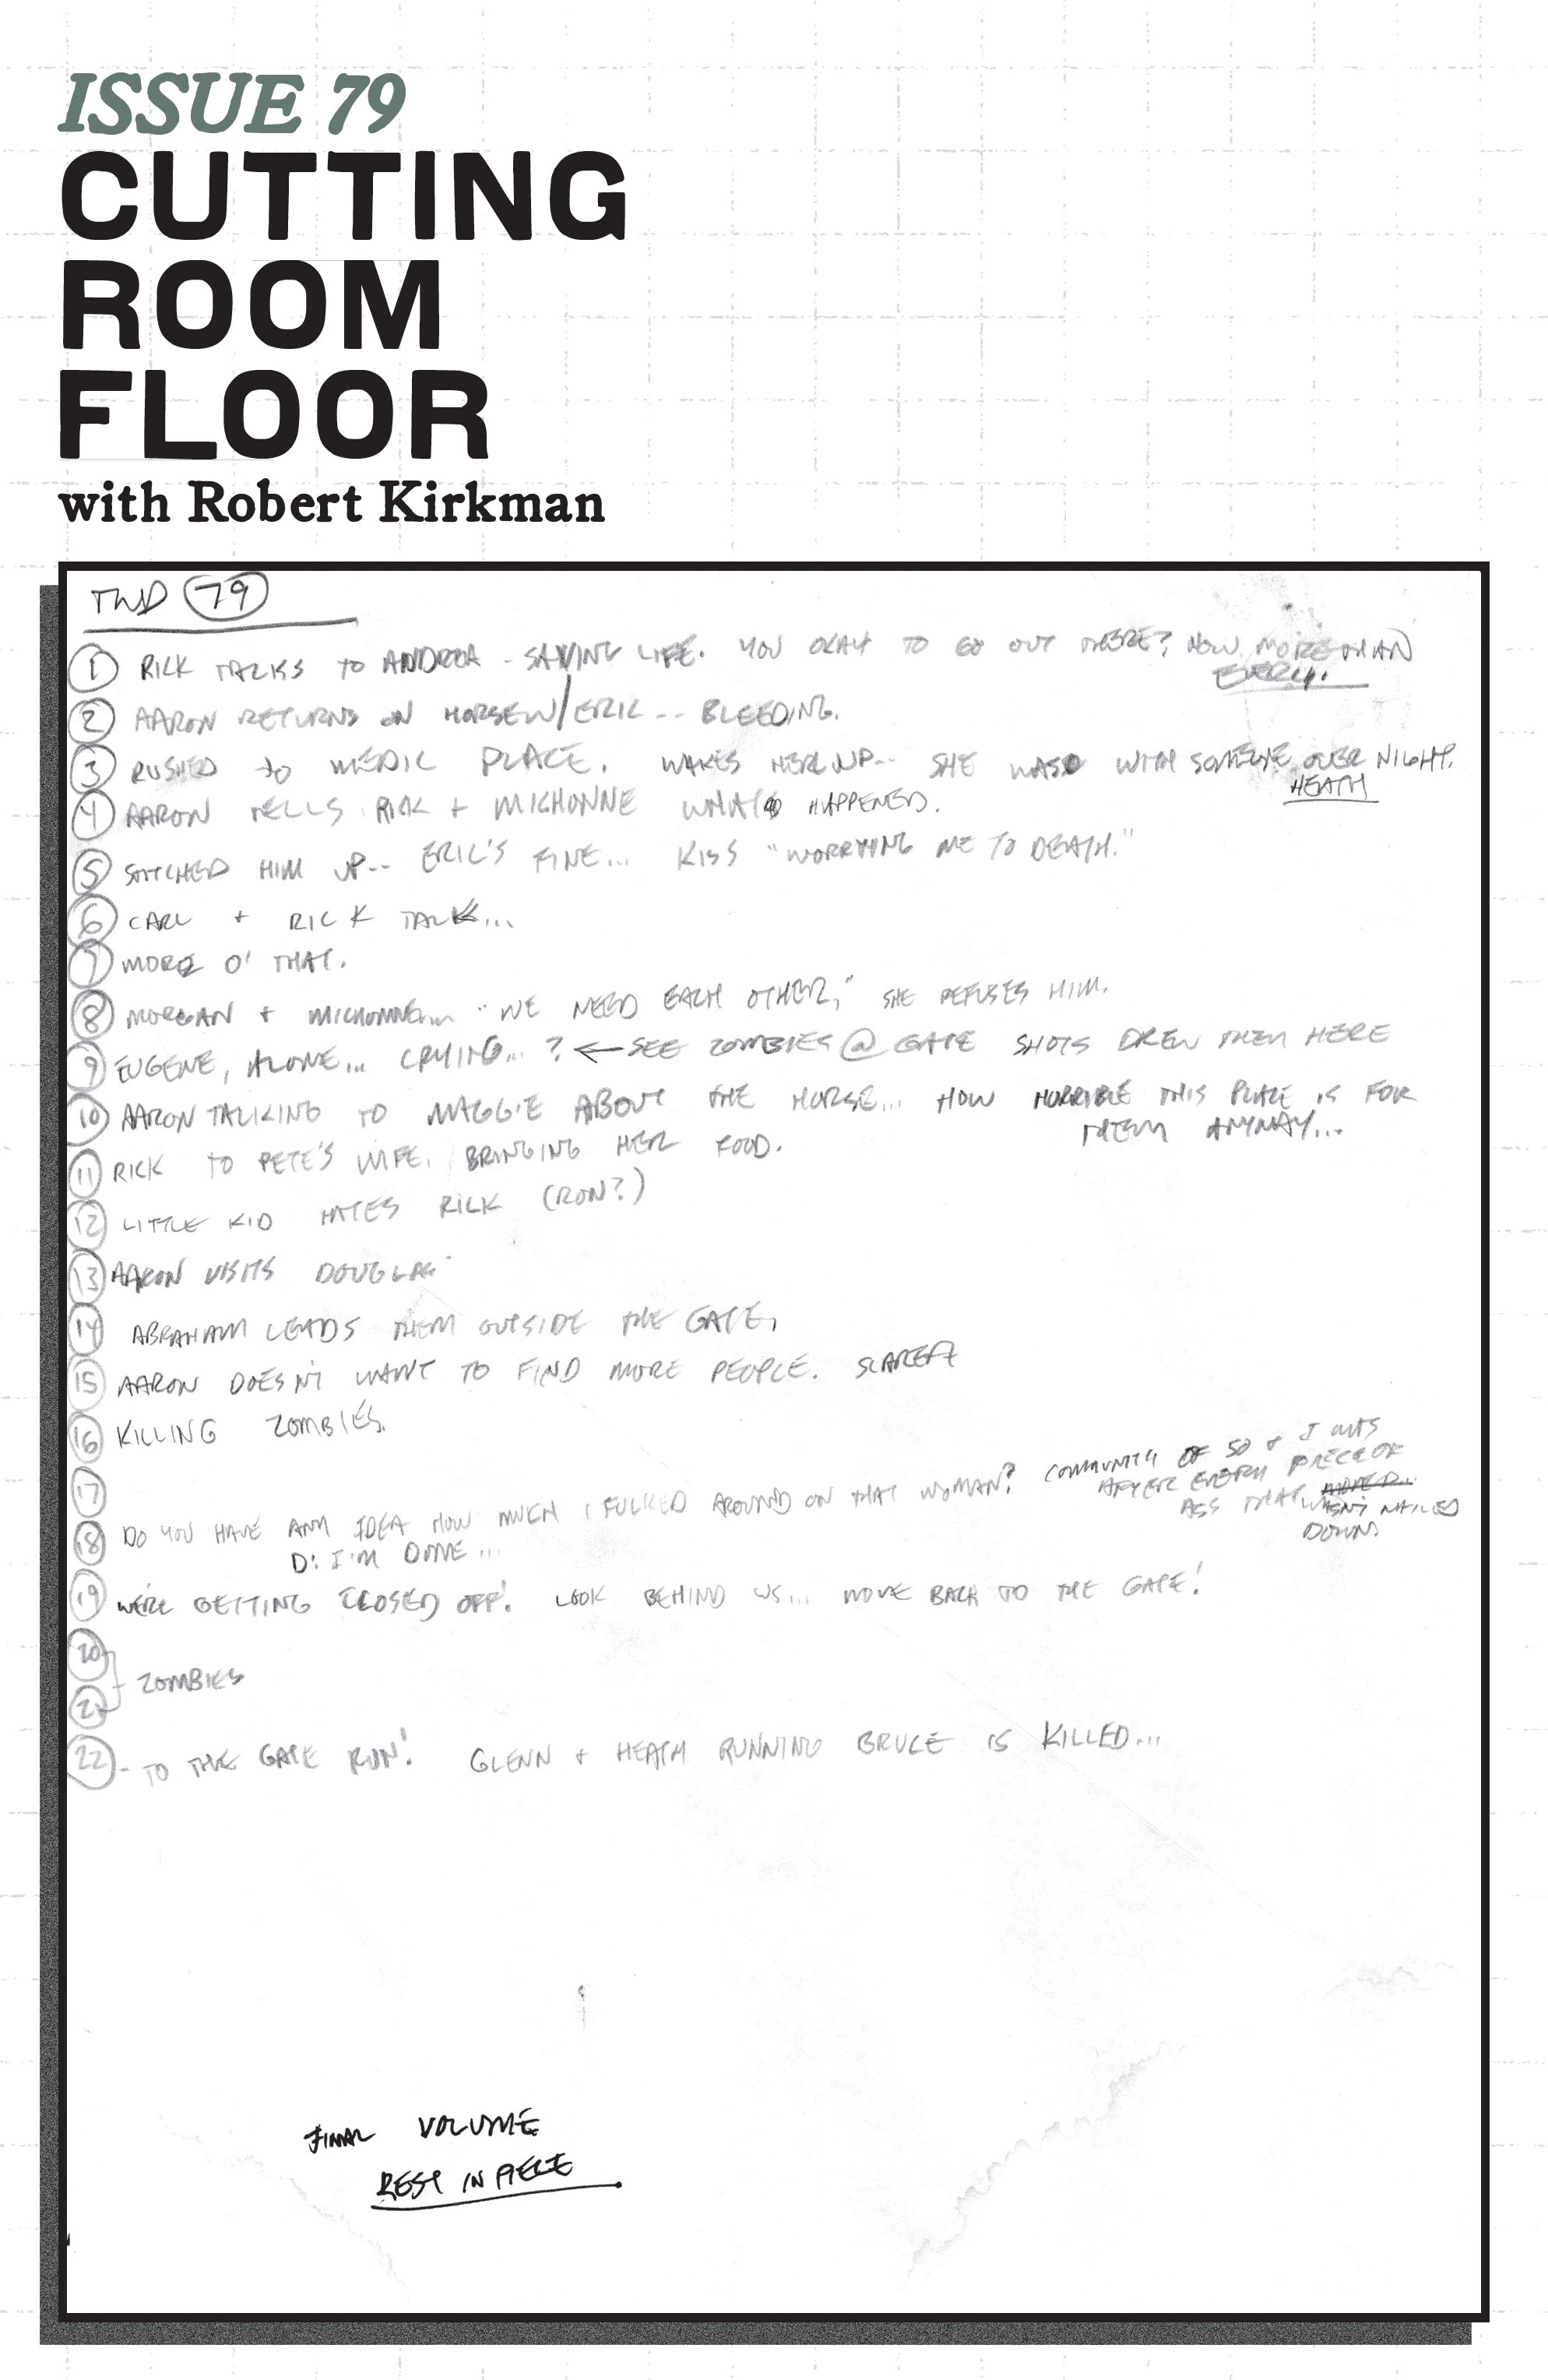 ISSUE 79
CUTTING
ROOM
FLOOR
with Robert Kirkman
TWD 79
1 RICK TALKS TO ANDREA - SAVING LIFE. YOU OKAY TO GO OUT THERE? NOW MORE THAN
EVER.
2 AARON RETURNS ON HORSE W/ ERIC -- BLEEDING.
3 RUSHED TO MEDIC PLACE. WAKES HER UP-- SHE WAS WITH SOMEONE OVER NIGHT.
HEATH
4 AARON TELLS RICK + MICHONNE WHAT HAPPENED.
5 STITCHED HIM UP-- ERIC'S FINE... KISS "WORRYING ME TO DEATH."
6 CARL + RICK TALK...
7 MORE O' THAT.
8 MORGAN + MICHONNE... "WE NEED EACH OTHER," SHE REFUSES HIM.
9 EUGENE, ALONE... CRYING...? ← SEE ZOMBIES @ GATE SHOTS DREW THEM HERE
10 AARON TALKING TO MAGGIE ABOUT THE HORSE... HOW HORRIBLE THIS PLACE IS FOR
THEM ANYWAY...
11 RICK TO PETE'S WIFE. BRINGING HER FOOD.
12 LITTLE KID HATES RICK (RON?)
13 AARON VISITS DOUGLAS
14 ABRAHAM LEADS THEM OUTSIDE THE GATE,
15 AARON DOESN'T WANT TO FIND MORE PEOPLE. SCARED
16 KILLING ZOMBIES.
17
18 DO YOU HAVE ANY IDEA HOW MUCH I FUCKED AROUND ON THAT WOMAN? COMMUNITY OF 50 + I WAS
AFTER EVERY PIECE OF
ASS THAT WASN'T NAILED
DOWN.
D: I'M DONE...
19 WE'RE GETTING CLOSED OFF! LOOK BEHIND US... MOVE BACK TO THE GATE!
20
21 ZOMBIES
22 - TO THE GATE RUN! GLENN + HEATH RUNNING BRUCE IS KILLED...
FINAL VOLUME
REST IN PIECE